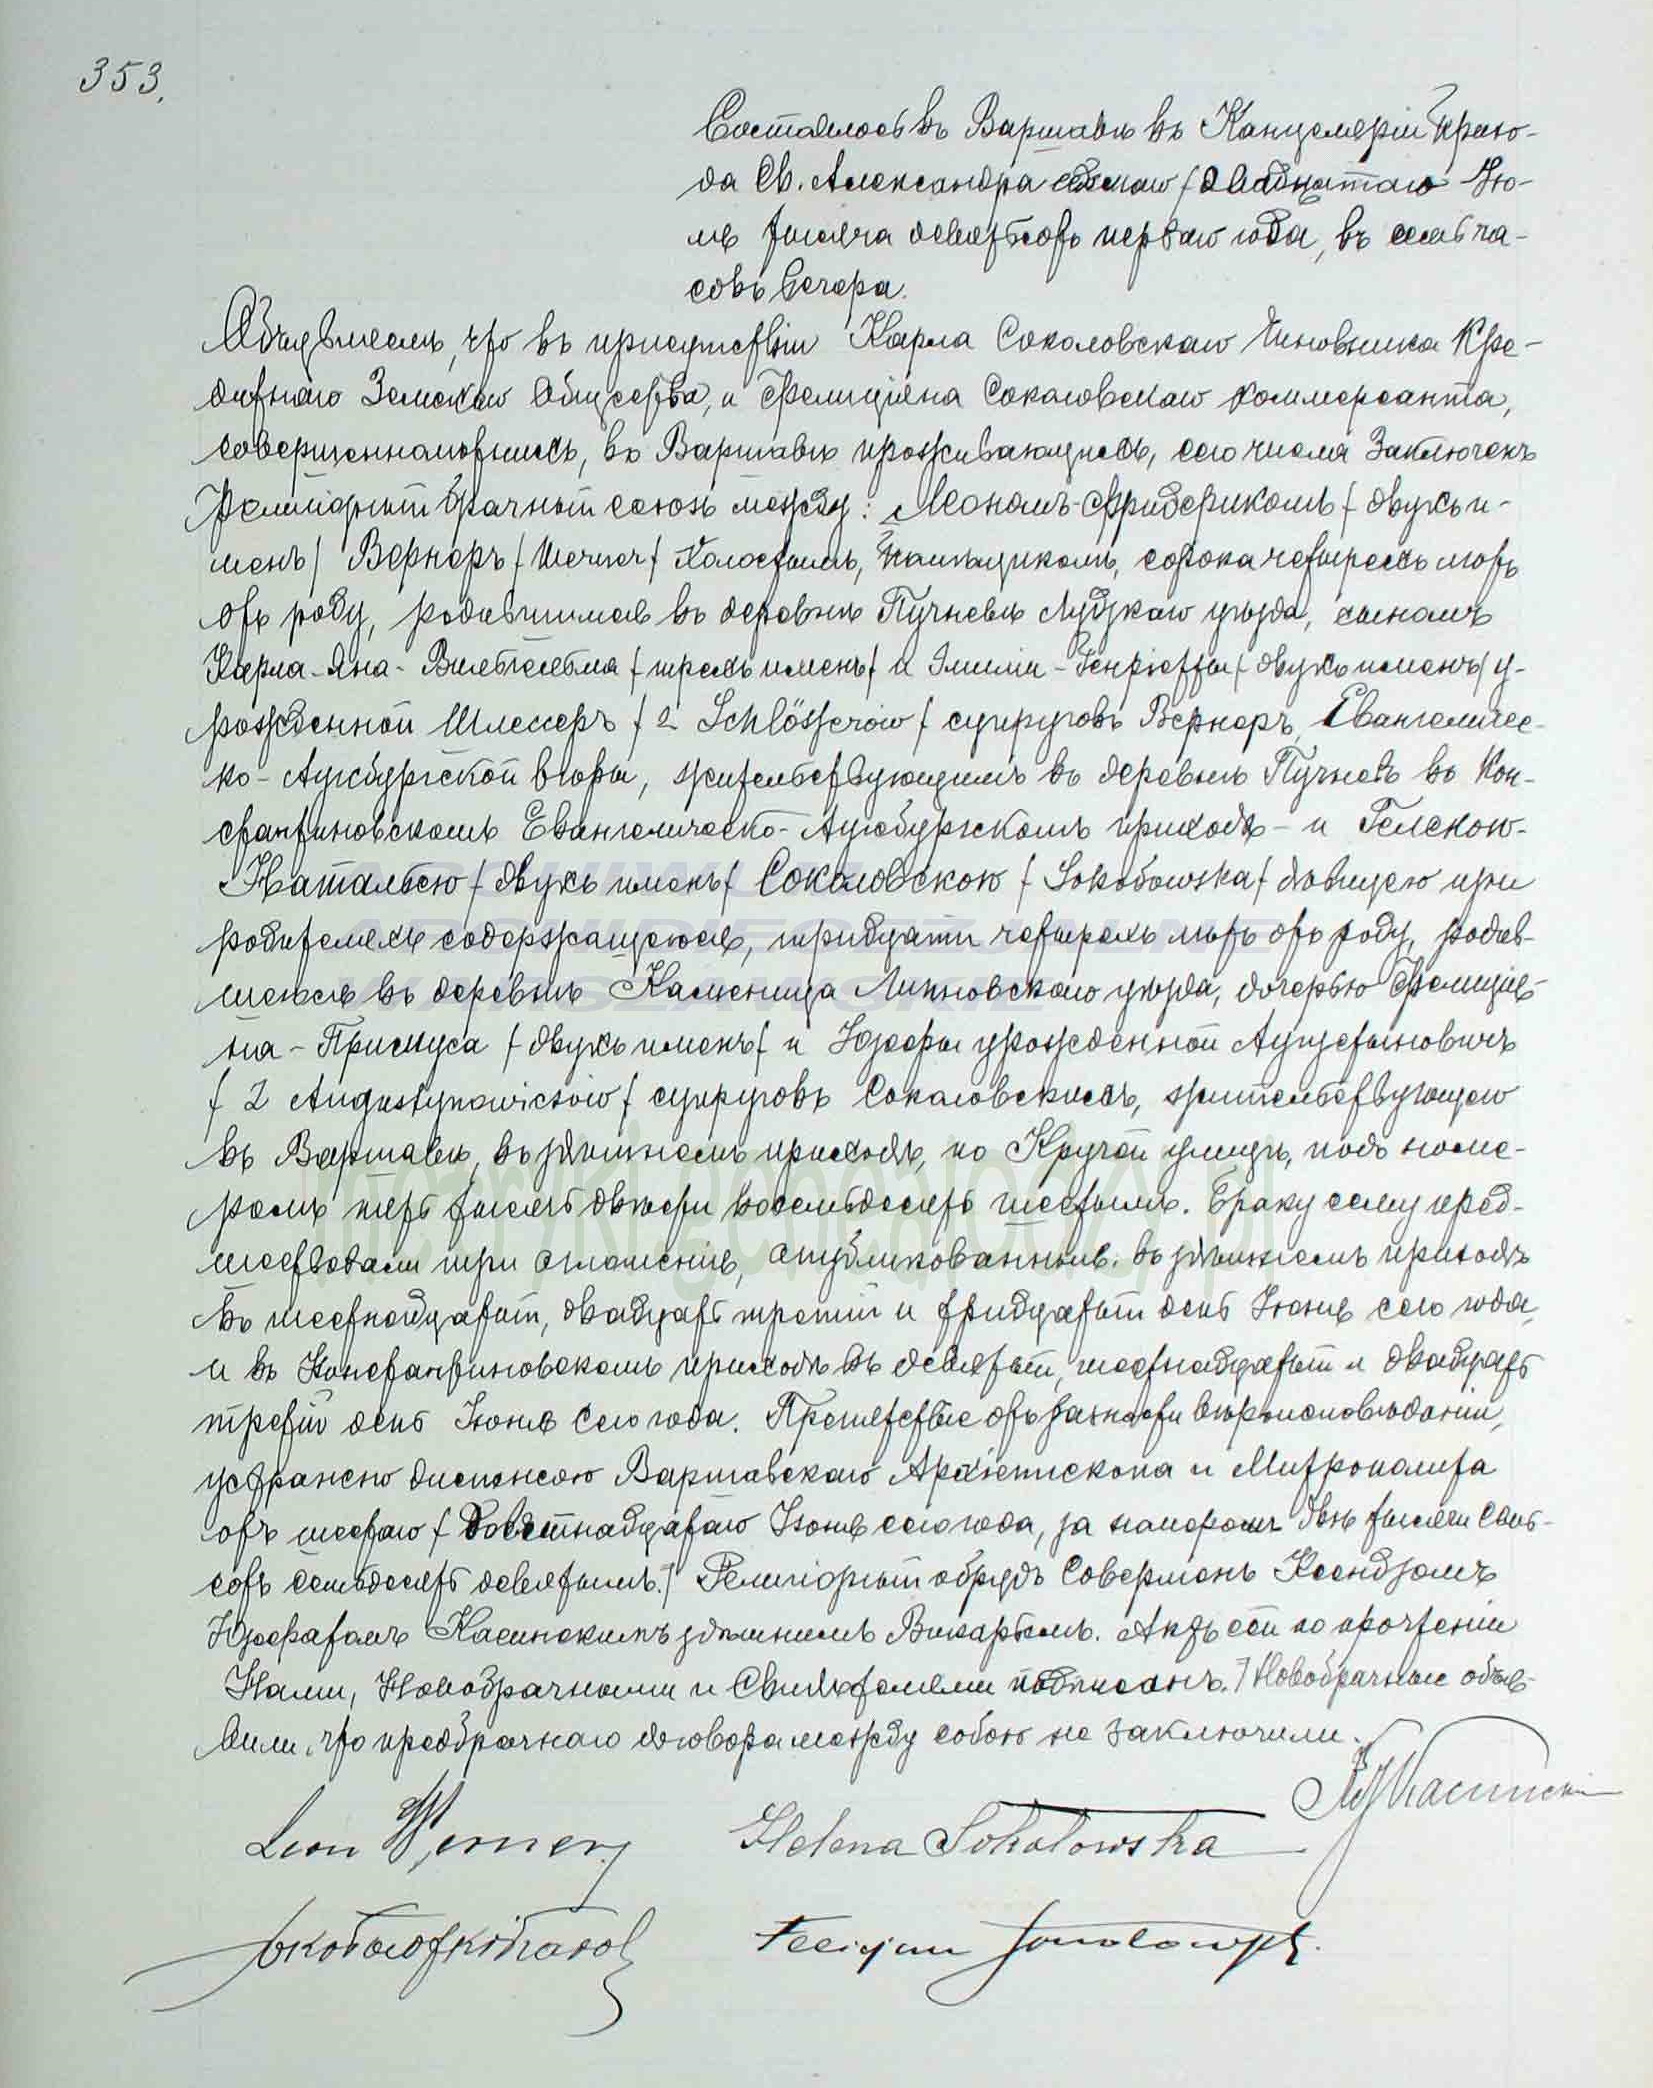 353.
Состоялось въ Варшавѣ въ Канцеляріи прихо-
да Св. Александра седьмаго / двадцатаго Ію-
ля тысяча девятьсотъ перваго года, въ семь ча-
совъ вечера.
Объявляемъ, что въ присутствіи Карла Соколовскаго чиновника Кре-
дитнаго Земскаго Общества, и Фелиціяна Соколовскаго коммерсанта,
совершеннолѣтнихъ, въ Варшавѣ проживающихъ, сего числа заключенъ
Религіозный брачный союзъ между: Леономъ-Фридерикомъ / двухъ и-
менъ / Вернеръ / Werner / холостымъ, помѣщикомъ, сорока четырехъ лѣтъ
отъ роду, родившимся въ деревнѣ Пучневѣ Лодзкаго уѣзда, сыномъ
Карла-Яна-Вильгельма / трехъ именъ / и Эмиліи-Генріетты / двухъ именъ / у-
рожденной Шлессеръ / z Schlösserów / супруговъ Вернеръ, Евангеличес-
ко-Аугсбургской вѣры, жительствующимъ въ деревнѣ Пучневъ въ Кон-
стантиновскомъ Евангелическо-Аугсбургскомъ приходѣ - и Геленою-
Натальею / двухъ именъ / Соколовскою / Sokołowska / дѣвицею при
родителяхъ содержащеюся, тридцати четырехъ лѣтъ отъ роду, родив-
шеюся въ деревнѣ Каменица Липновскаго уѣзда, дочерью Фелиція-
на-Приспуса / двухъ именъ / и Юзефы урожденной Аугустыновичъ
/ z Augustynowiczów / супруговъ Соколовскихъ, жительствующею
въ Варшавѣ, въ здѣшнемъ приходѣ, по Кручой улицѣ, подъ номе-
ромъ пять тысячъ двѣсти восемьдесятъ шестымъ. Браку сему пред-
шествовали три оглашенія, опубликованныя въ здѣшнемъ приходѣ
въ шестнадцатый, двадцать третій и тридцатый день Іюня сего года,
и въ Константиновскомъ приходѣ въ девятый, шестнадцатый и двадцать
третій день Іюня сего года. Препятствіе отъ разности вѣроисповѣданій,
устранено диспенсою Варшавскаго Архіепископа и Митрополита
отъ шестаго / девятнадцатаго Іюня сего года, за номеромъ двѣ тысячи семь-
сотъ семьдесятъ девятымъ. Религіозный обрядъ совершенъ Ксендзомъ
Юзефатомъ Касинскимъ здѣшнимъ Викаріемъ. Актъ сей по прочтеніи
Нами, Новобрачными и Свидѣтелями подписанъ. Новобрачные объя-
вили, что предбрачнаго договора между собою не заключили.
Leon Werner
Helena Sokołowska
Felicyan Sokołowski